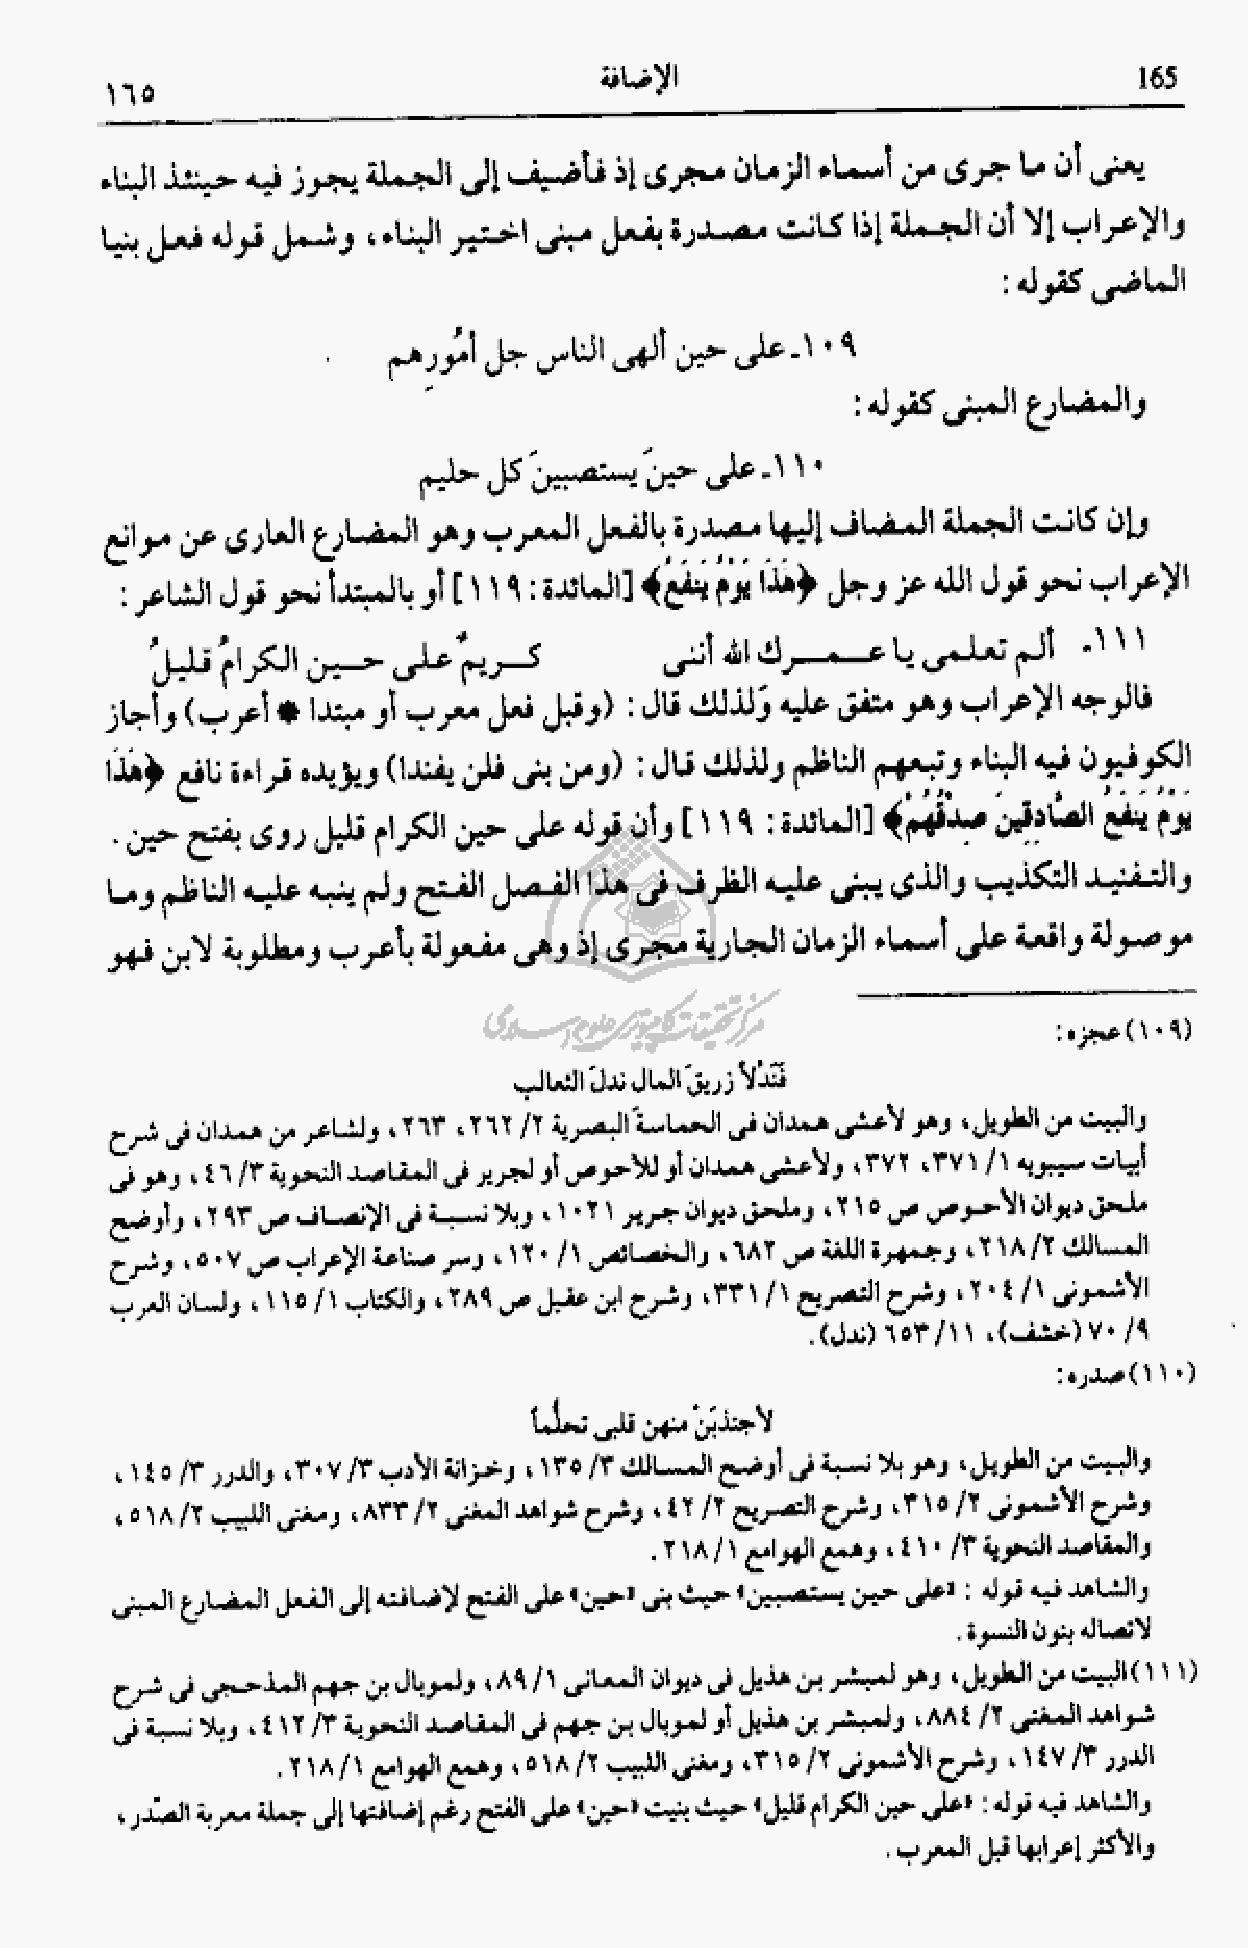 165
الإضافة
١٦٥
يعنى أن ما جرى من أسماء الزمان مجرى إذ فأضيف إلى الجملة يجوز فيه حينئذ البناء
والإعراب إلا أن الجملة إذا كانت مصدرة بفعل مبنى اختير البناء، وشمل قوله فعل بنيا
الماضى كقوله:
١٠٩ـ على حين ألهى الناس جل أمُورِهم
والمضارع المبنى كقوله:
١١٠ـ على حينَ يستصبينَ كل حليم
وإن كانت الجملة المضاف إليها مصدرة بالفعل المعرب وهو المضارع العارى عن موانع
الإعراب نحو قول الله عز وجل ﴿هَذَا يَوْمُ يَنفَعُ﴾ [المائدة: ١١٩] أو بالمبتدأ نحو قول الشاعر:
١١١ـ ألم تعلمى يا عمرك الله أننى كريمٌ على حين الكرامُ قليلُ
فالوجه الإعراب وهو متفق عليه وَلذلك قال: (وقبل فعل معرب أو مبتدا * أعرب) وأجاز
الكوفيون فيه البناء وتبعهم الناظم ولذلك قال: (ومن بنى فلن يفندا) ويؤيده قراءة نافع ﴿هَذَا
يَوْمَ يَنفَعُ الصَّادِقِينَ صِدْقُهُمْ﴾ [المائدة: ١١٩] وأن قوله على حين الكرام قليل روى بفتح حين.
والتفنيد التكذيب والذى يبنى عليه الظرف فى هذا الفصل الفتح ولم ينبه عليه الناظم وما
موصولة واقعة على أسماء الزمان الجارية مجرى إذ وهى مفعولة بأعرب ومطلوبة لابن فهو
مرکز تحقیقات کامپیوتری علوم اسلامی
(١٠٩) عجزه:
فَنَدْلاً زريقَ المال ندلَ الثعالب
والبيت من الطويل، وهو لأعشى همدان فى الحماسة البصرية ٢/ ٢٦٢، ٢٦٣، ولشاعر من همدان فى شرح
أبيات سيبويه ١/ ٣٧١، ٣٧٢، ولأعشى همدان أو للأحوص أو لجرير فى المقاصد النحوية ٣/ ٤٦، وهو فى
ملحق ديوان الأحوص ص ٢١٥، وملحق ديوان جرير ١٠٢١، وبلا نسبة فى الإنصاف ص ٢٩٣، وأوضح
المسالك ٢/ ٢١٨، وجمهرة اللغة ص ٦٨٢، والخصائص ١/ ١٢٠، وسر صناعة الإعراب ص ٥٠٧، وشرح
الأشمونى ١/ ٢٠٤، وشرح التصريح ١/ ٣٣١، وشرح ابن عقيل ص ٢٨٩، والكتاب ١/ ١١٥، ولسان العرب
٩/ ٧٠ (خشف)، ١١/ ٦٥٣ (ندل).
(١١٠) صدره:
لأجتذبَنْ منهن قلبى تحلُّماً
والبيت من الطويل، وهو بلا نسبة فى أوضح المسالك ٣/ ١٣٥، وخزانة الأدب ٣/ ٣٠٧، والدرر ٣/ ١٤٥،
وشرح الأشمونى ٢/ ٣١٥، وشرح التصريح ٢/ ٤٢، وشرح شواهد المغنى ٢/ ٨٣٣، ومغنى اللبيب ٢/ ٥١٨،
والمقاصد النحوية ٣/ ٤١٠، وهمع الهوامع ١/ ٢١٨.
والشاهد فيه قوله: «على حين يستصبين» حيث بنى «حين» على الفتح لإضافته إلى الفعل المضارع المبنى
لاتصاله بنون النسوة.
(١١١) البيت من الطويل، وهو لمبشر بن هذيل فى ديوان المعانى ١/ ٨٩، ولموبال بن جهم المذحجى فى شرح
شواهد المغنى ٢/ ٨٨٤، ولمبشر بن هذيل أو لموبال بن جهم فى المقاصد النحوية ٣/ ٤١٢، وبلا نسبة فى
الدرر ٣/ ١٤٧، وشرح الأشمونى ٢/ ٣١٥، ومغنى اللبيب ٢/ ٥١٨، وهمع الهوامع ١/ ٢١٨.
والشاهد فيه قوله: «على حين الكرام قليل» حيث بنيت «حين» على الفتح رغم إضافتها إلى جملة معربة الصّدر،
والأكثر إعرابها قبل المعرب.